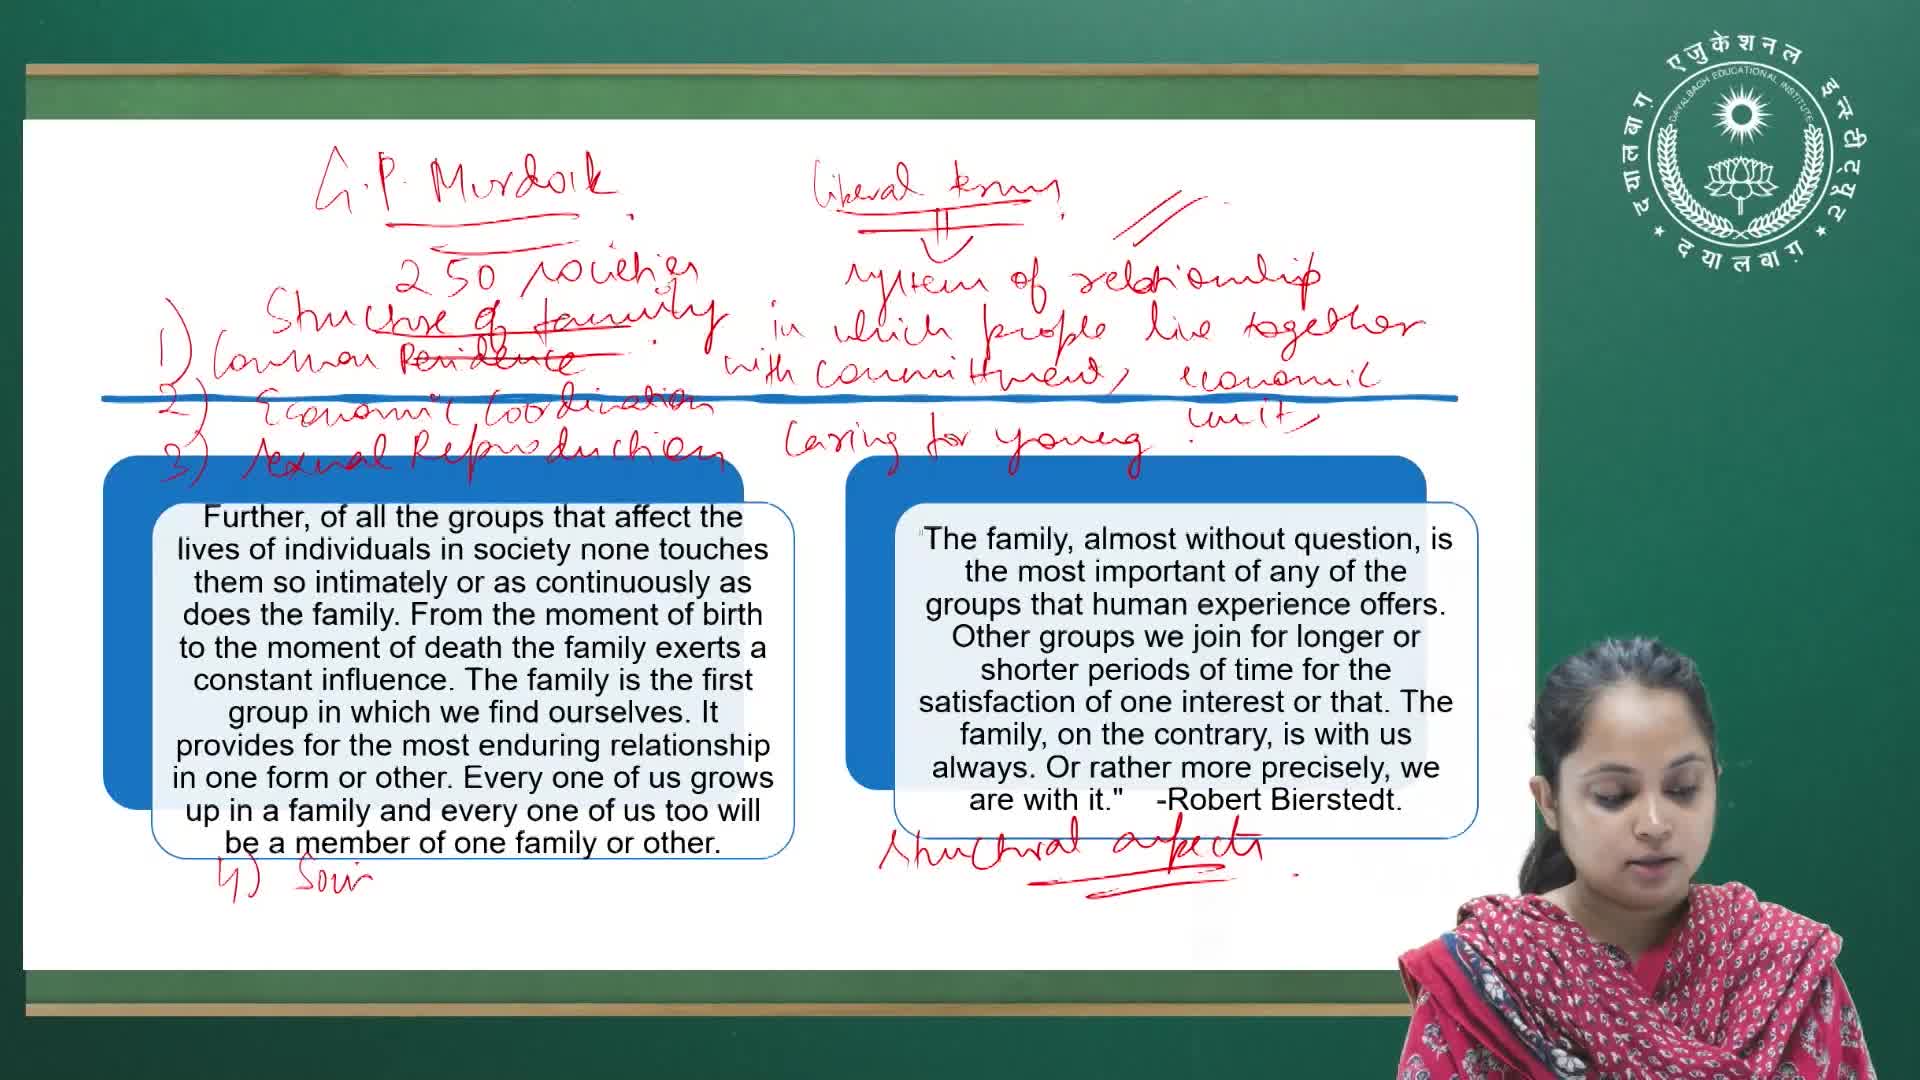 G.P. Murdock
250 societies
Structure of family
1) Common Residence
2) Economic Coordination
3) Sexual Reproduction
liberal terms
system of relationship
in which people live together
with committment, economic
unit,
Caring for young
Further, of all the groups that affect the
lives of individuals in society none touches
them so intimately or as continuously as
does the family. From the moment of birth
to the moment of death the family exerts a
constant influence. The family is the first
group in which we find ourselves. It
provides for the most enduring relationship
in one form or other. Every one of us grows
up in a family and every one of us too will
be a member of one family or other.
4)
"The family, almost without question, is
the most important of any of the
groups that human experience offers.
Other groups we join for longer or
shorter periods of time for the
satisfaction of one interest or that. The
family, on the contrary, is with us
always. Or rather more precisely, we
are with it." -Robert Bierstedt.
Structural aspects
दयालबाग़ एजुकेशनल इन्स्टीट्यूट
DAYALBAGH EDUCATIONAL INSTITUTE
* दयालबाग़ *